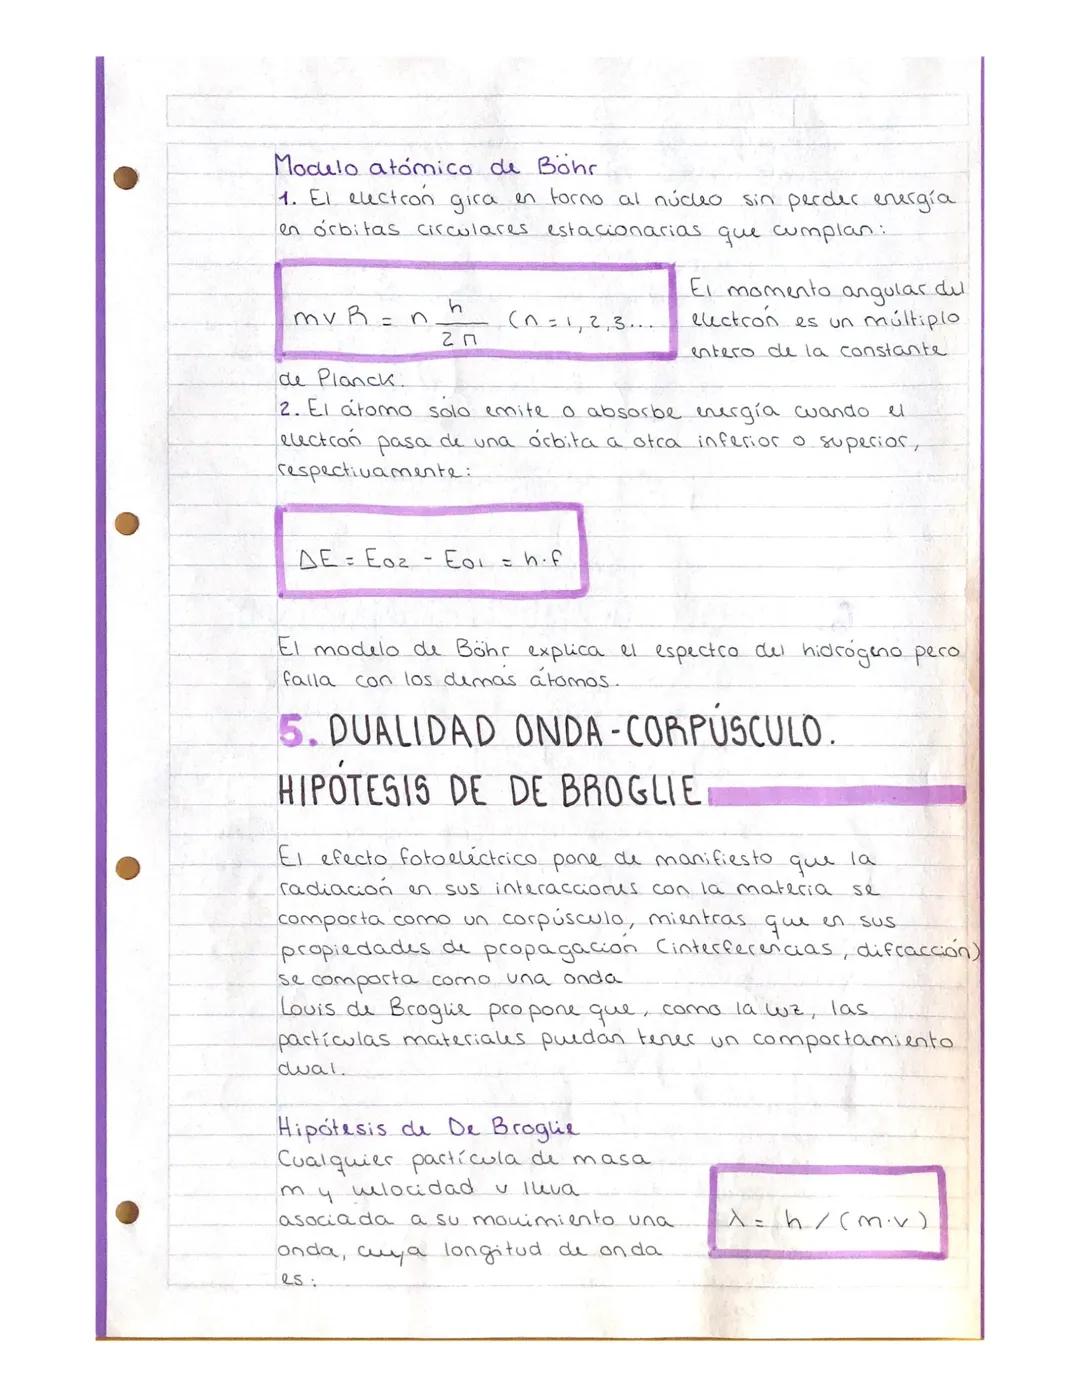 Modelo atómico de Böhr
1. El electrón gira en torno al núcleo sin perder energía
en órbitas circulares estacionarias que cumplan:
mvR = n h/2π (n=1,2,3...
El momento angular del
electrón es un múltiplo
entero de la constante
de Planck.
2. El átomo sólo emite o absorbe energía cuando el
electrón pasa de una órbita a otra inferior o superior,
respectivamente:
ΔE = E02 - E01 = h·f
El modelo de Böhr explica el espectro del hidrógeno pero
falla con los demás átomos.
5. DUALIDAD ONDA-CORPÚSCULO.
HIPÓTESIS DE DE BROGLIE
El efecto fotoeléctrico pone de manifiesto que la
radiación en sus interacciones con la materia se
comporta como un corpúsculo, mientras que en sus
propiedades de propagación (interferencias, difracción)
se comporta como una onda
Louis de Broglie propone que, como la luz, las
partículas materiales puedan tener un comportamiento
dual.
Hipótesis de De Broglie
Cualquier partícula de masa
m y velocidad v lleva
asociada a su movimiento una
onda, cuya longitud de onda
es:
λ = h / (m·v)